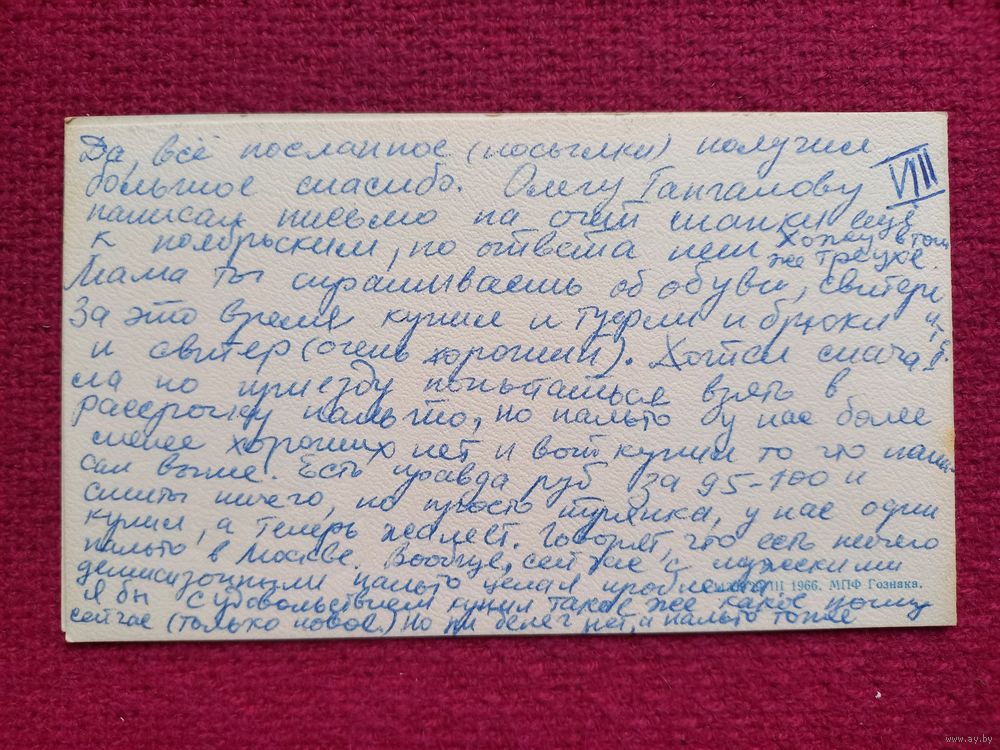 Да, всё посланное (посылки) получил
большое спасибо. Олегу
VIII
написал письмо на счёт шапки ещё
к ноябрьским, но ответа нет Хожу в той
же треухе.
Мама ты спрашиваешь об обуви, свитере
и т. д.
За это время купил и туфли и брюки
и свитер (очень хороший). Хотел снача
ла по приезду попытаться взять в
рассрочку пальто, но пальто у нас более
менее хороших нет и вот купил то что напи-
сал выше. Есть правда руб за 95-100 и
сшиты ничего, но просто тряпка, у нас один
купил, а теперь жалеет. Говорят, что есть ничего
пальто в Москве. Вообще, сейчас с мужскими
демисезонными пальто целая проблема.
VIII 1966. МПФ Гознака.
Я бы с удовольствием купил такое же какое ношу
сейчас (только новое.) Но ни денег нет, и пальто тоже
www.ay.by